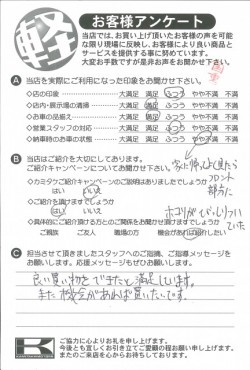 軽
お客様アンケート
当店では、お買い上げ頂いたお客様の声を可能
な限り現場に反映し、お客様により良い商品と
サービスを提供する事に努めています。
大変お手数ですが是非お声をお聞かせ下さい。
A 当店を実際にご利用になった印象をお聞かせ下さい。
◇店の印象 大満足 満足 ふつう やや不満 不満
◇店内・展示場の清掃 大満足 満足 ふつう やや不満 不満
◇お車の品揃え 大満足 満足 ふつう やや不満 不満
◇営業スタッフの対応 大満足 満足 ふつう やや不満 不満
◇納車時のお車の状態 大満足 満足 ふつう やや不満 不満
B 当店はご紹介を大切にしてあります。
ご紹介キャンペーンについてお聞かせ下さい。
◇カミタケご紹介キャンペーンのご説明はありましたでしょうか
はい いいえ
◇ご紹介を頂けますでしょうか
はい いいえ
◇具体的にご紹介頂ける方とのご関係をお聞かせ頂けますでしょうか
ご親族 ご友人 職場の方 機会があれば紹介したい
家に帰ってよく見たら
フロント
部分に
ホコリがびっしりつい
ていた
C 担当させて頂きましたスタッフへのご指摘、ご指導メッセージを
お願いします。応援メッセージもぜひお願いします。
良い買い物をできたと満足しています。
また機会があれば買いたいです。
K
ご協力に心よりお礼を申し上げます。
今後とも宜しくお引き立てご愛顧の程お願い申し上げます。
またのご来店を心からお待ちしております。